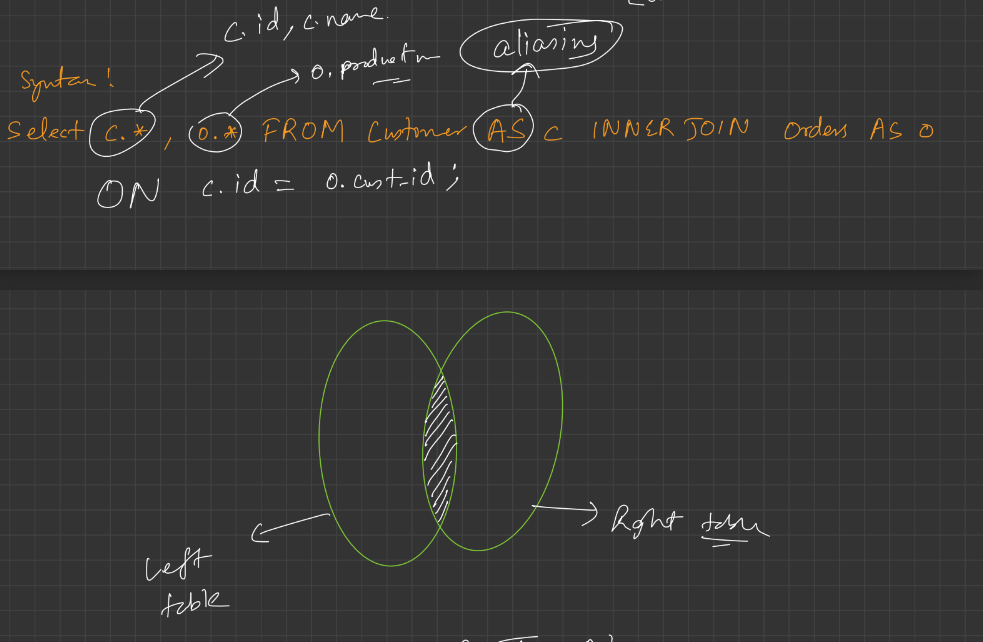 c.id, c.name.
o.product
aliasing
Syntax!
Select c.*, o.* FROM Customer AS c INNER JOIN Orders AS o
ON c.id = o.cust-id;
Right table
Left
table